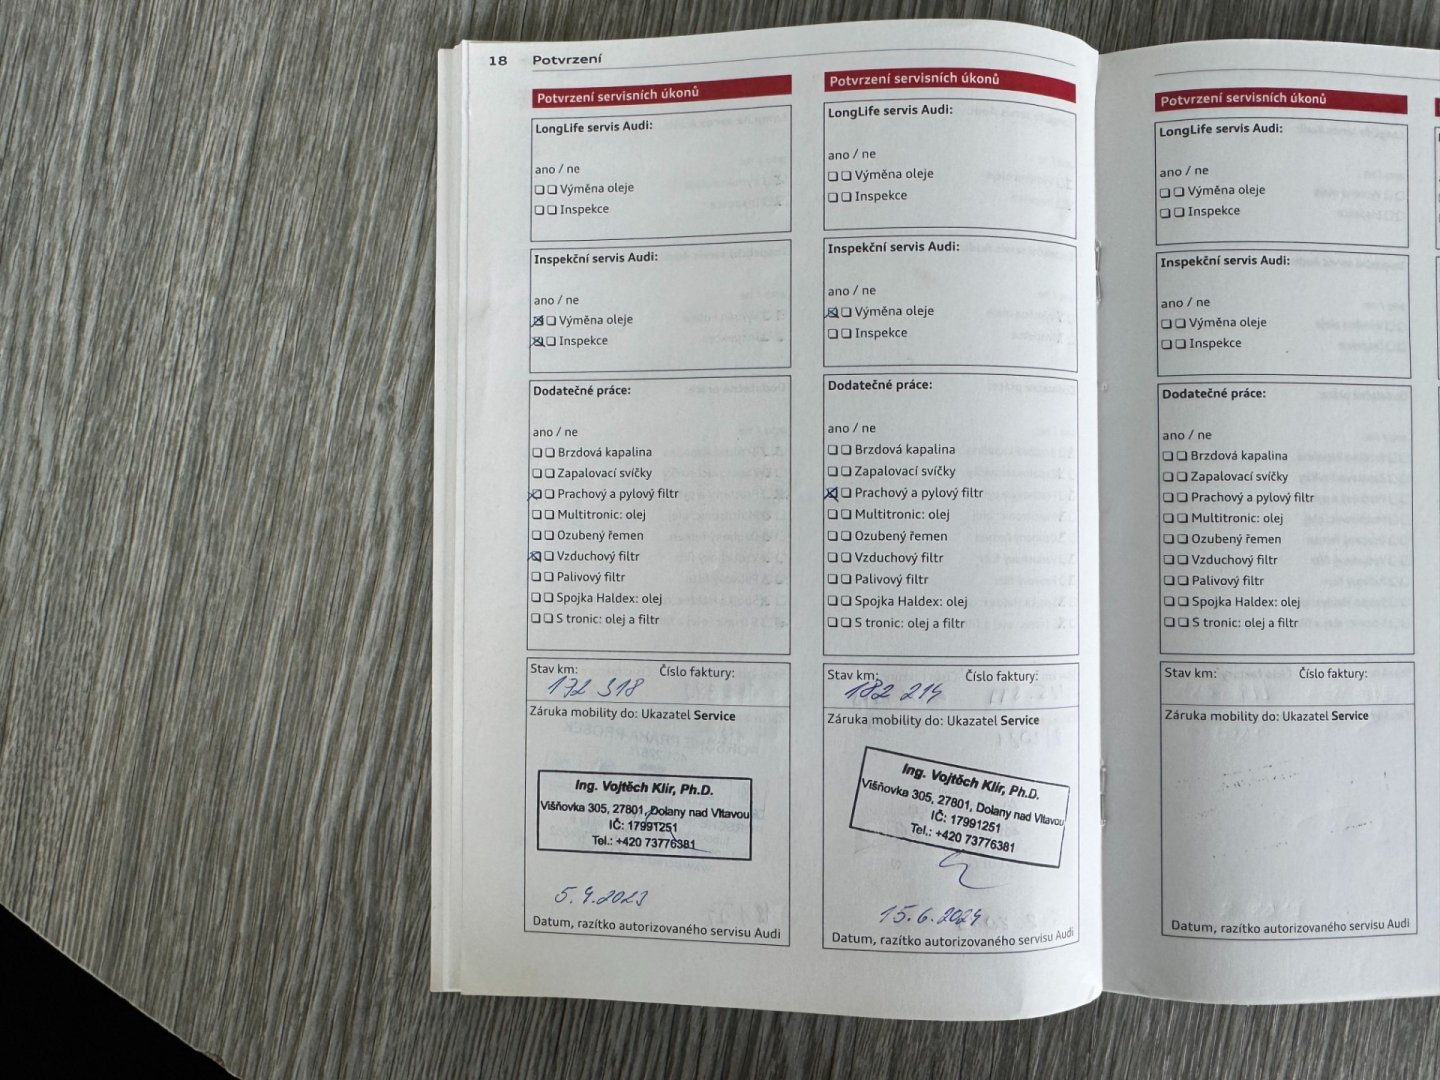 18 Potvrzení
Potvrzení servisních úkonů
LongLife servis Audi:
ano / ne
Výměna oleje
Inspekce
Inspekční servis Audi:
ano / ne
Výměna oleje
Inspekce
Dodatečné práce:
ano / ne
Brzdová kapalina
Zapalovací svíčky
Prachový a pylový filtr
Multitronic: olej
Ozubený řemen
Vzduchový filtr
Palivový filtr
Spojka Haldex: olej
S tronic: olej a filtr
Stav km: Číslo faktury:
172 318
Záruka mobility do: Ukazatel Service
Ing. Vojtěch Klír, Ph.D.
Višňovka 305, 27801, Dolany nad Vltavou
IČ: 17991251
Tel.: +420 73776381
5.9.2023
Datum, razítko autorizovaného servisu Audi
Potvrzení servisních úkonů
LongLife servis Audi:
ano / ne
Výměna oleje
Inspekce
Inspekční servis Audi:
ano / ne
Výměna oleje
Inspekce
Dodatečné práce:
ano / ne
Brzdová kapalina
Zapalovací svíčky
Prachový a pylový filtr
Multitronic: olej
Ozubený řemen
Vzduchový filtr
Palivový filtr
Spojka Haldex: olej
S tronic: olej a filtr
Stav km: Číslo faktury:
182 214
Záruka mobility do: Ukazatel Service
Ing. Vojtěch Klír, Ph.D.
Višňovka 305, 27801, Dolany nad Vltavou
IČ: 17991251
Tel.: +420 73776381
15.6.2024
Datum, razítko autorizovaného servisu Audi
Potvrzení servisních úkonů
LongLife servis Audi:
ano / ne
Výměna oleje
Inspekce
Inspekční servis Audi:
ano / ne
Výměna oleje
Inspekce
Dodatečné práce:
ano / ne
Brzdová kapalina
Zapalovací svíčky
Prachový a pylový filtr
Multitronic: olej
Ozubený řemen
Vzduchový filtr
Palivový filtr
Spojka Haldex: olej
S tronic: olej a filtr
Stav km: Číslo faktury:
Záruka mobility do: Ukazatel Service
Datum, razítko autorizovaného servisu Audi